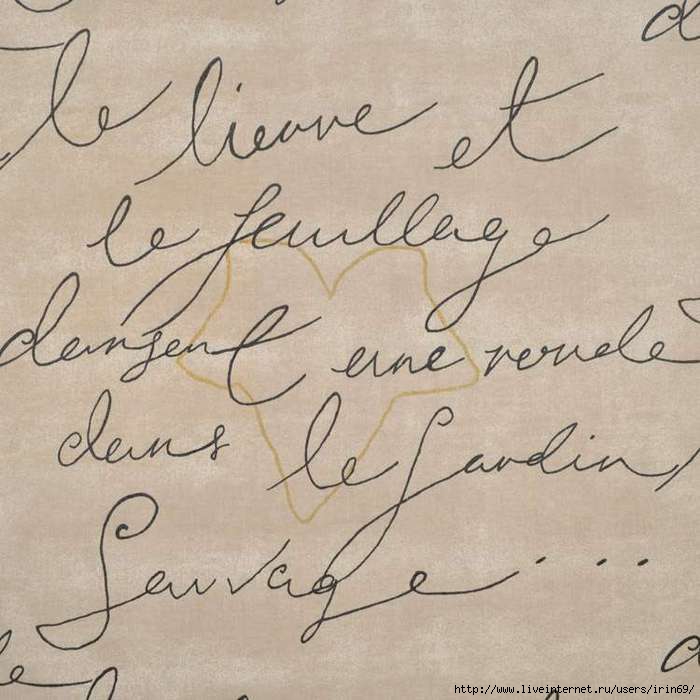 le lierre et
le feuillage
dansent une ronde
dans le jardin
Sauvage...
http://www.liveinternet.ru/users/irin69/